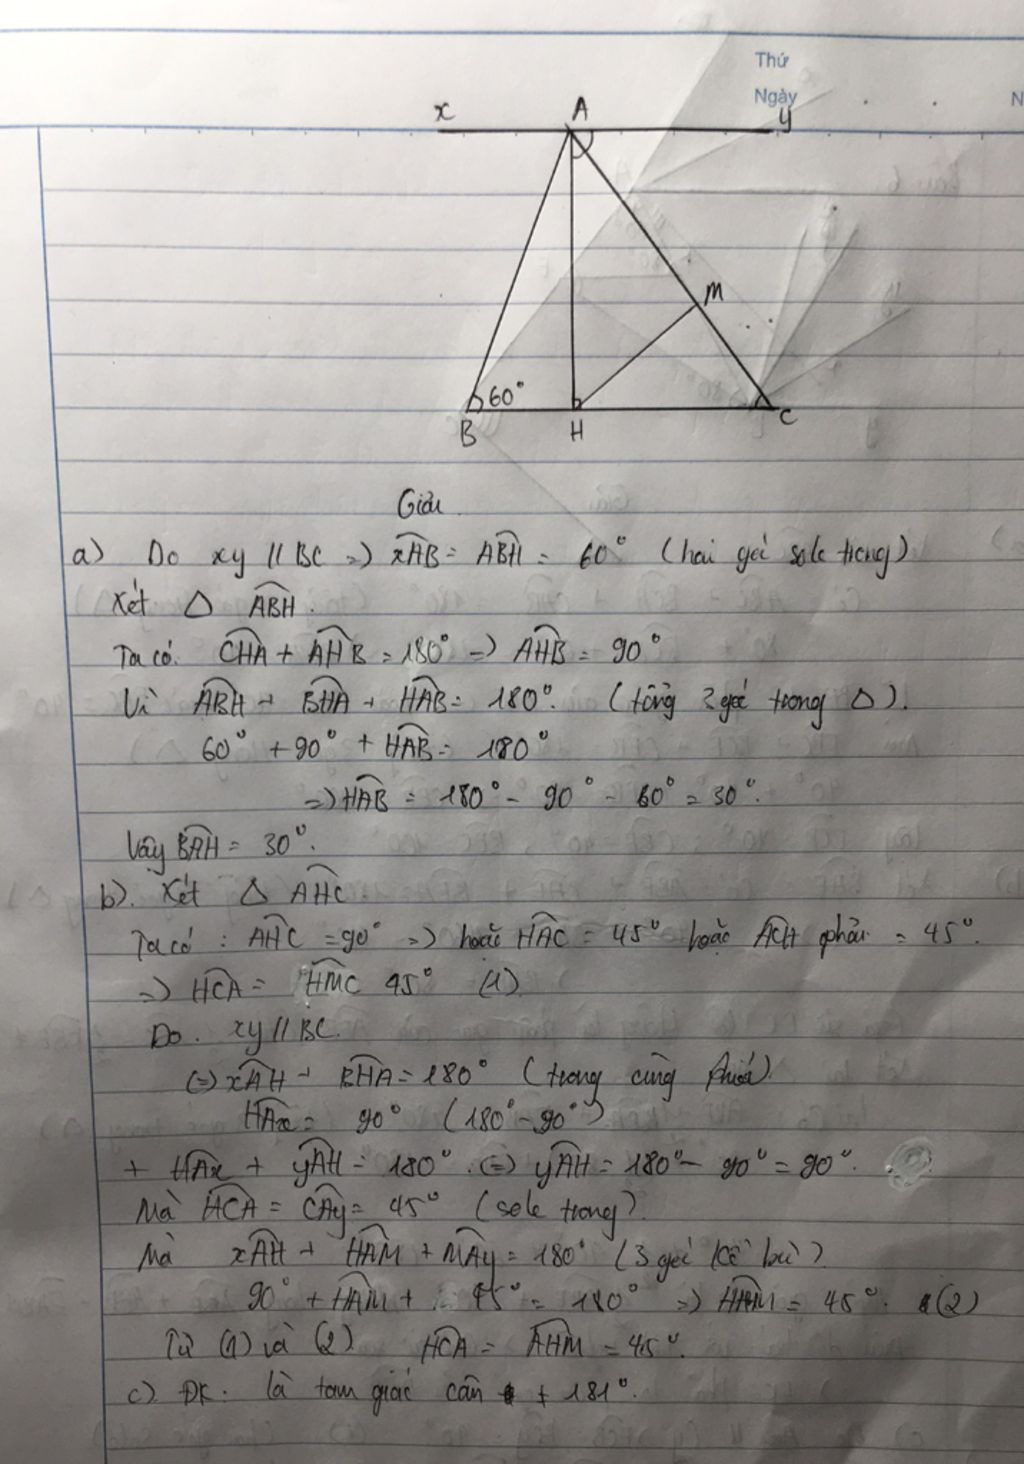 Thứ
Ngày
N
x A y
M
60°
B H C
Giải
a) Do xy // BC => xAB = ABH = 60° (hai góc sole trong)
Xét △ ABH.
Ta có. CHA + AHB = 180° => AHB = 90°
Vì ABH + BHA + HAB = 180°. (tổng 3 góc trong △).
60° + 90° + HAB = 180°
=> HAB = 180° - 90° - 60° = 30°.
Vậy BAH = 30°.
b). Xét △ AHC
Ta có : AHC = 90° => hoặc HAC = 45° hoặc ACH phải = 45°.
=> HCA = HMC 45° (1)
Do. xy // BC.
(=) xAH + BHA = 180° (trong cùng phía)
HAx = 90° (180° - 90°)
+ HAx + yAH = 180°. (=) yAH = 180° - 90° = 90°.
Mà HCA = CAy = 45° (sole trong)
Mà xAH + HAM + MAy = 180° (3 góc kề bù)
90° + HAM + 45° = 180° => HAM = 45°. (2)
Từ (1) và (2) HCA = AHM = 45°.
c) ĐK. là tam giác cân + 181°.